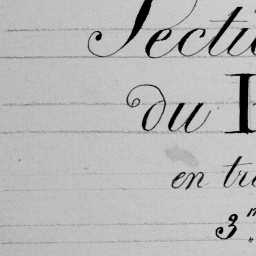 Secti
du
en tr
3 m